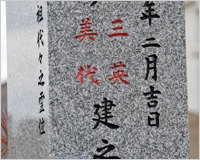 年二月吉日
三英
美代
建之
祖代々之霊位